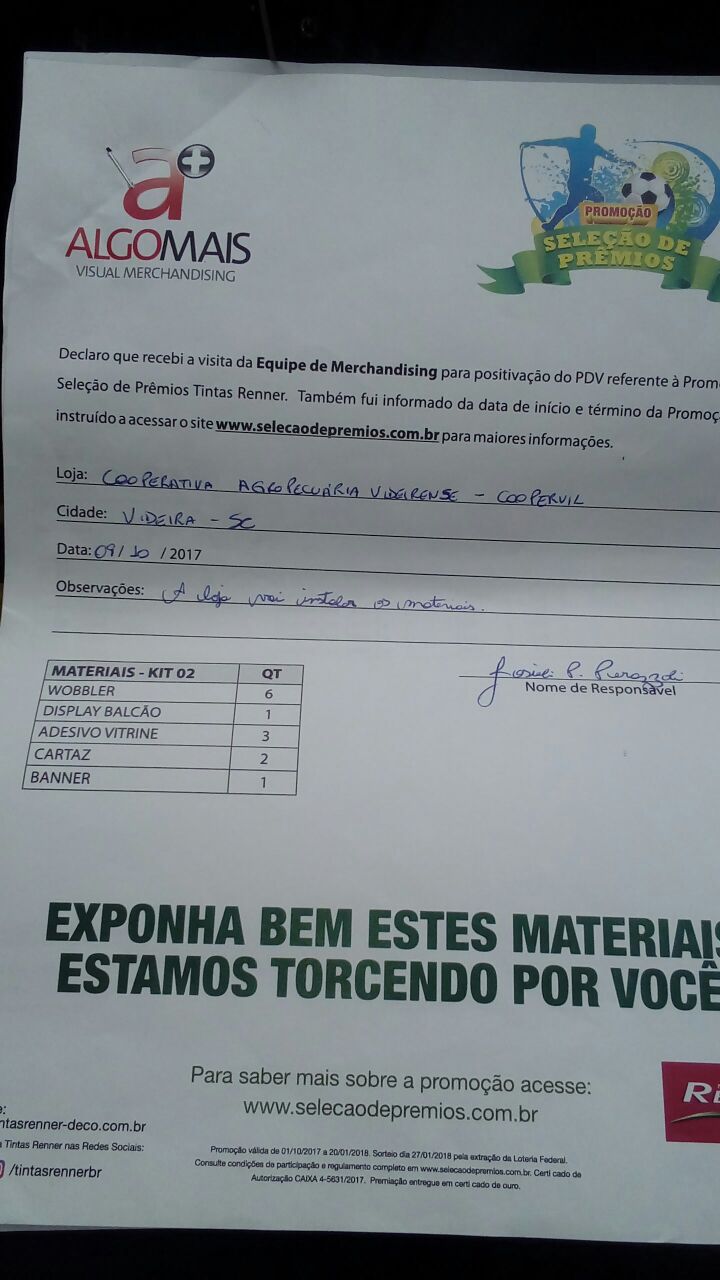 a+
ALGOMAIS
VISUAL MERCHANDISING
PROMOÇÃO
SELEÇÃO DE
PRÊMIOS
Declaro que recebi a visita da Equipe de Merchandising para positivação do PDV referente à Prom
Seleção de Prêmios Tintas Renner. Também fui informado da data de início e término da Promoç
instruído a acessar o site www.selecaodepremios.com.br para maiores informações.
Loja: COOPERATIVA AGROPECUÁRIA VIDEIRENSE - COOPERVIL
Cidade: VIDEIRA - SC
Data: 09/10 /2017
Observações: A loja vai instalar os materiais.
Nome de Responsável
MATERIAIS - KIT 02 QT
WOBBLER 6
DISPLAY BALCÃO 1
ADESIVO VITRINE 3
CARTAZ 2
BANNER 1
EXPONHA BEM ESTES MATERIAIS
ESTAMOS TORCENDO POR VOCÊ
Para saber mais sobre a promoção acesse:
www.selecaodepremios.com.br
e:
ntasrenner-deco.com.br
a Tintas Renner nas Redes Sociais:
/tintasrennerbr
Promoção válida de 01/10/2017 a 20/01/2018. Sorteio dia 27/01/2018 pela extração da Loteria Federal.
Consulte condições de participação e regulamento completo em www.selecaodepremios.com.br. Certi cado de
Autorização CAIXA 4-5631/2017. Premiação entregue em certi cado de ouro.